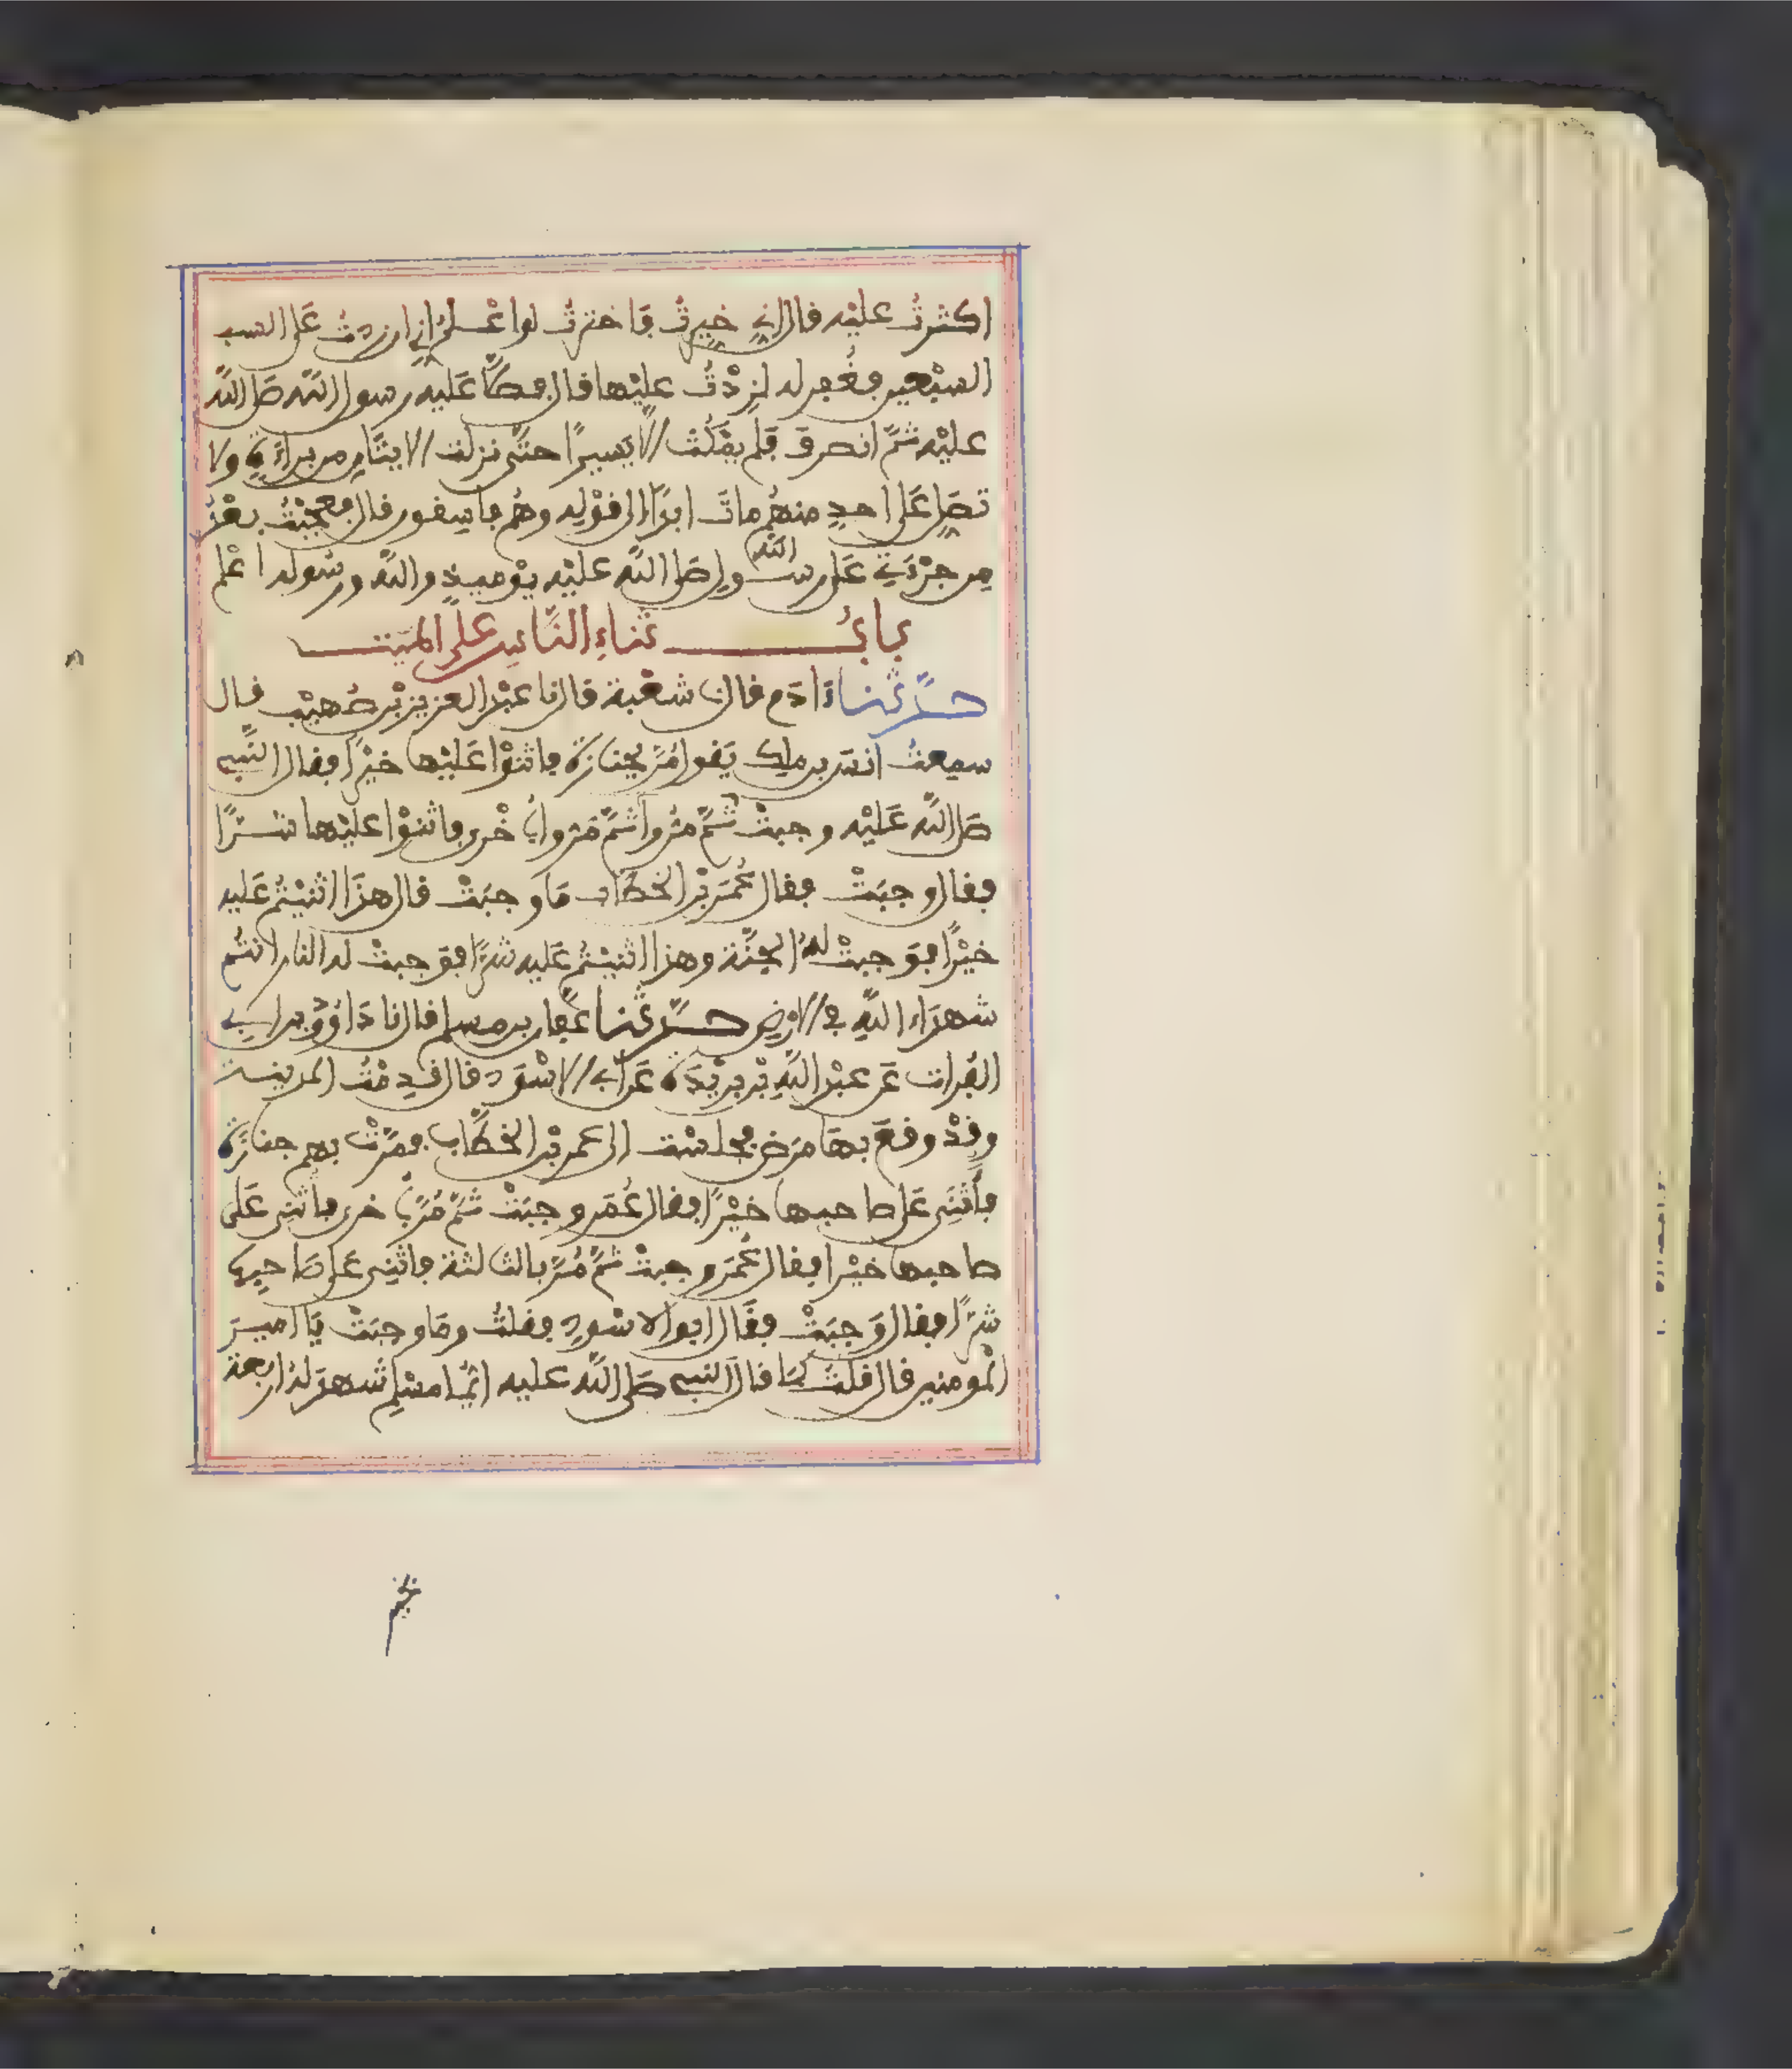 اكثرتُ عليْه فال إنِّي خيِّرتُ فَاخترتُ لو اعْلمُ إنِّي ان زدتُ عَلى السب
السبْعين فغُفِر له لزِدْتُ عليْها فال فصلَّا عَليه رسول الله صَلى اللَّه
عليْه ثمَّ انصرفَ فَلم يمْكُثْ الَّا يَسيرًا حتَّى نزلت الايتَانِ من براءَةٍ ولا
تصَلِّ عَلى احدٍ منهُم ماتَ ابدًا الى فوْلِه وهُم فاسفون فال فعجبْتُ بعْدُ
مِن جرْءَتِي عَلى رسُول الله صَلى اللَّه عليْه يوْميذٍ والله ورسُوله اعْلم
بابُ ثناءِ النَّاسِ علَى الميّت
حدَّثنا ءَادَم فال نا شعْبة فال نا عبْد العزيز بْن صُهيْب فال
سمِعتُ انسَ بن ملِك يَفول مُرَّ بجنازة فاثنوْا عَليْها خيْرًا ففال النَّبي
صَلى اللَّه عَليْه وجبتْ ثمَّ مرُّوا ثمَّ مَروا بأُخْرى فاثنوْا عليْها شرًّا
ففال وجبَتْ ففال عُمَر بْن الخطَّاب مَا وجبَتْ فال هذَا اثنيْتُم عَليه
خيْرًا فوَجبتْ لهُ الجنَّة وهذا اثنيْتُم عَليه شرًّا فوَجبتْ له النار انتُم
شهدَاء اللَّهِ في الارْضِ حدَّثنا عفَّان بن مسلم فال نا دَاوُوْد بن ابِي
الفُرات عَن عبْد اللَّهِ بْن بريْدَة عَن ابي الاسْوَد فال فدِمْتُ المدينة
وفدْ وفعَ بهَا مرَض فجلسْت الى عمر بْن الخطَّاب فمرَّتْ بهم جنازة
فأُثنِىَ عَلى صاحبها خيْرًا ففال عُمَر وجبَتْ ثمَّ مُرَّ بأخرى فاثنِى عَلى
صاحبها خيْرا ففال عُمَر وجبتْ ثمَّ مُرَّ بالثالثة فاثنِى عَلى صَاحبِها
شرًّا ففال وَجبَتْ ففَال ابوا الاسْودِ ففلتُ ومَا وجبَتْ يَا اميرَ
المُومنين فال فلتُ كمَا فال النبي صَلى اللَّه عليه ايُّما مسْلِم شهدَ لهُ اربعة